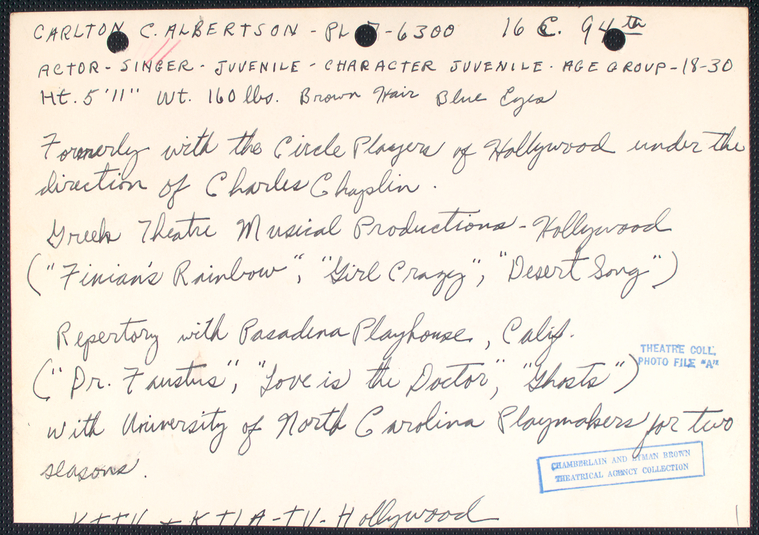 CARLTON C. ALBERTSON - PL 7-6300 16 E. 94th
ACTOR - SINGER - JUVENILE - CHARACTER JUVENILE - AGE GROUP - 18-30
Ht. 5'11" Wt. 160 lbs. Brown Hair Blue Eyes
Formerly with the Circle Players of Hollywood under the
direction of Charles Chaplin.
Greek Theatre Musical Productions - Hollywood
("Finian's Rainbow", "Girl Crazy", "Desert Song")
Repertory with Pasadena Playhouse, Calif.
("Dr. Faustus", "Love is the Doctor", "Ghosts")
THEATRE COLL.
PHOTO FILE "A"
with University of North Carolina Playmakers for two
seasons.
CHAMBERLAIN AND LYMAN BROWN
THEATRICAL AGENCY COLLECTION
KTTV + KTLA-TV - Hollywood